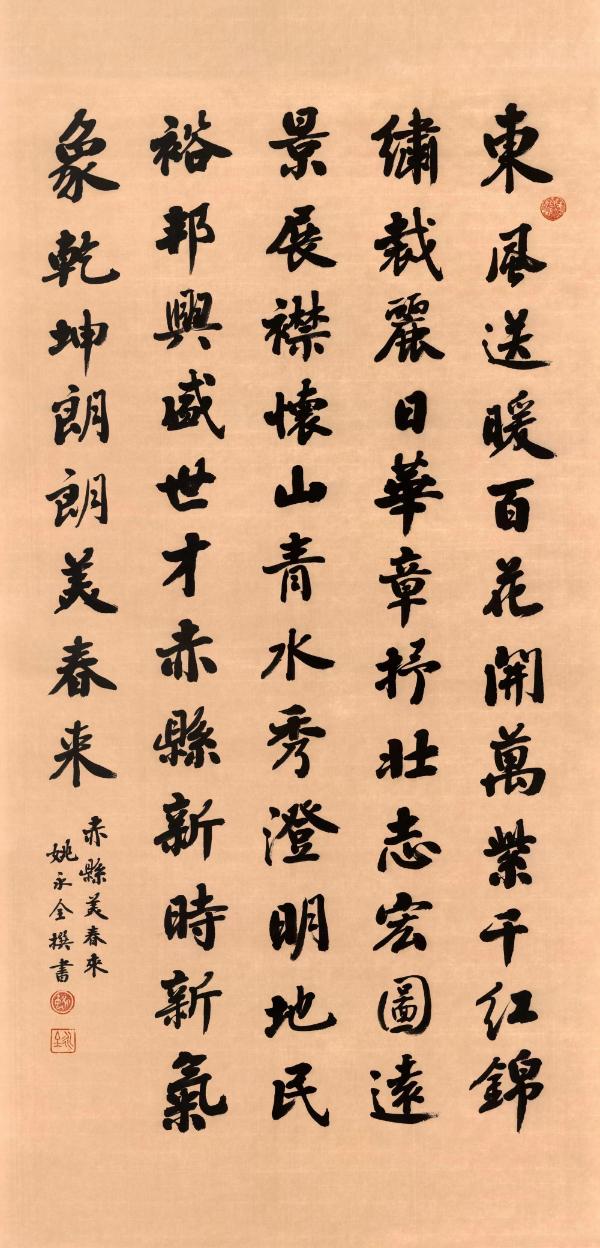 東風送暖百花開萬紫千红錦
繡裁麗日華章抒壮志宏圖遠
景展襟懷山青水秀澄明地民
裕邦興盛世才赤縣新時新氣
象乾坤朗朗美春来
赤縣美春來
姚永全撰書